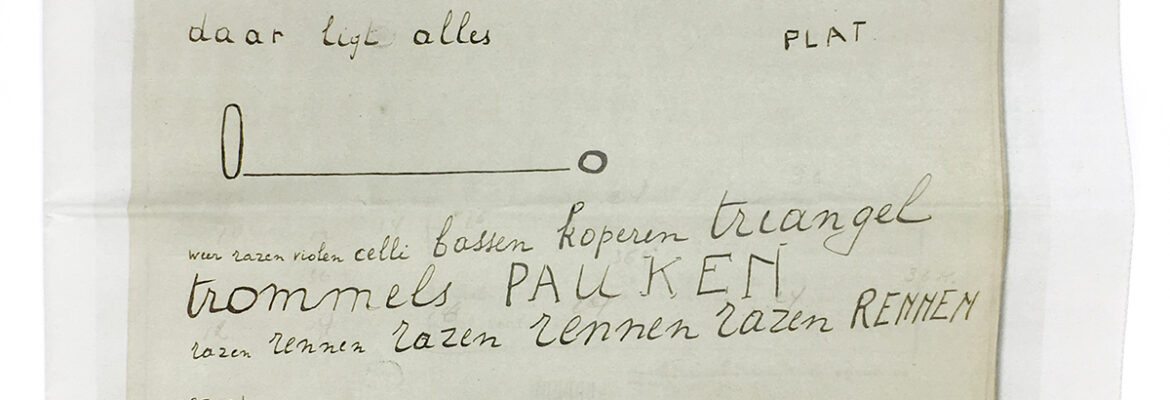 daar ligt alles PLAT
weer razen violen celli bassen koperen triangel
trommels PAUKEN
razen rennen razen rennen razen RENNEN